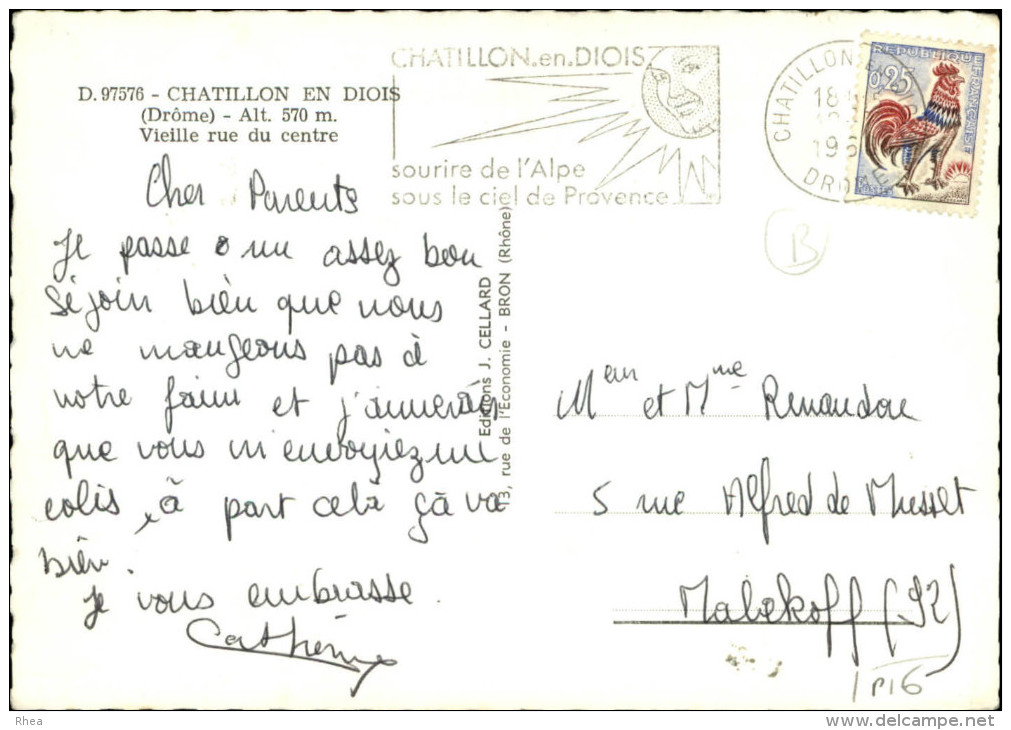 D. 97576 - CHATILLON EN DIOIS
(Drôme) - Alt. 570 m.
Vieille rue du centre
CHATILLON.en.DIOIS
sourire de l'Alpe
sous le ciel de Provence
CHATILLON
18
196
DRO
REPUBLIQUE FRANÇAISE
0,25
POSTES
B
Cher Parents
Je passe un assez bon
séjoin bien que nous
ne mangeons pas à
notre faim et j'aimerais
que vous m'envoyiez un
colis, à part celà çà va
bien.
Je vous embrasse.
Catherine
Editions J. CELLARD
13, rue de l'Economie - BRON (Rhône)
Meur et Mme Renaudou
5 rue Alfred de Musset
Malakoff (92)
1 P16
Rhea
www.delcampe.net